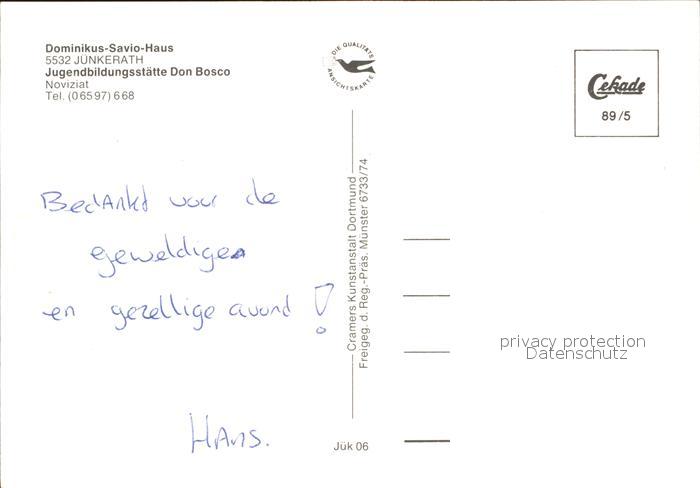 Dominikus-Savio-Haus
5532 JÜNKERATH
Jugendbildungsstätte Don Bosco
Noviziat
Tel. (06597) 668
DIE QUALITÄTS
ANSICHTSKARTE
Cekade
89/5
Bedankt voor de
geweldige
en gezellige avond !
Hans.
Cramers Kunstanstalt Dortmund
Freigeg. d. Reg.-Präs. Münster 6733/74
Jük 06
privacy protection
Datenschutz